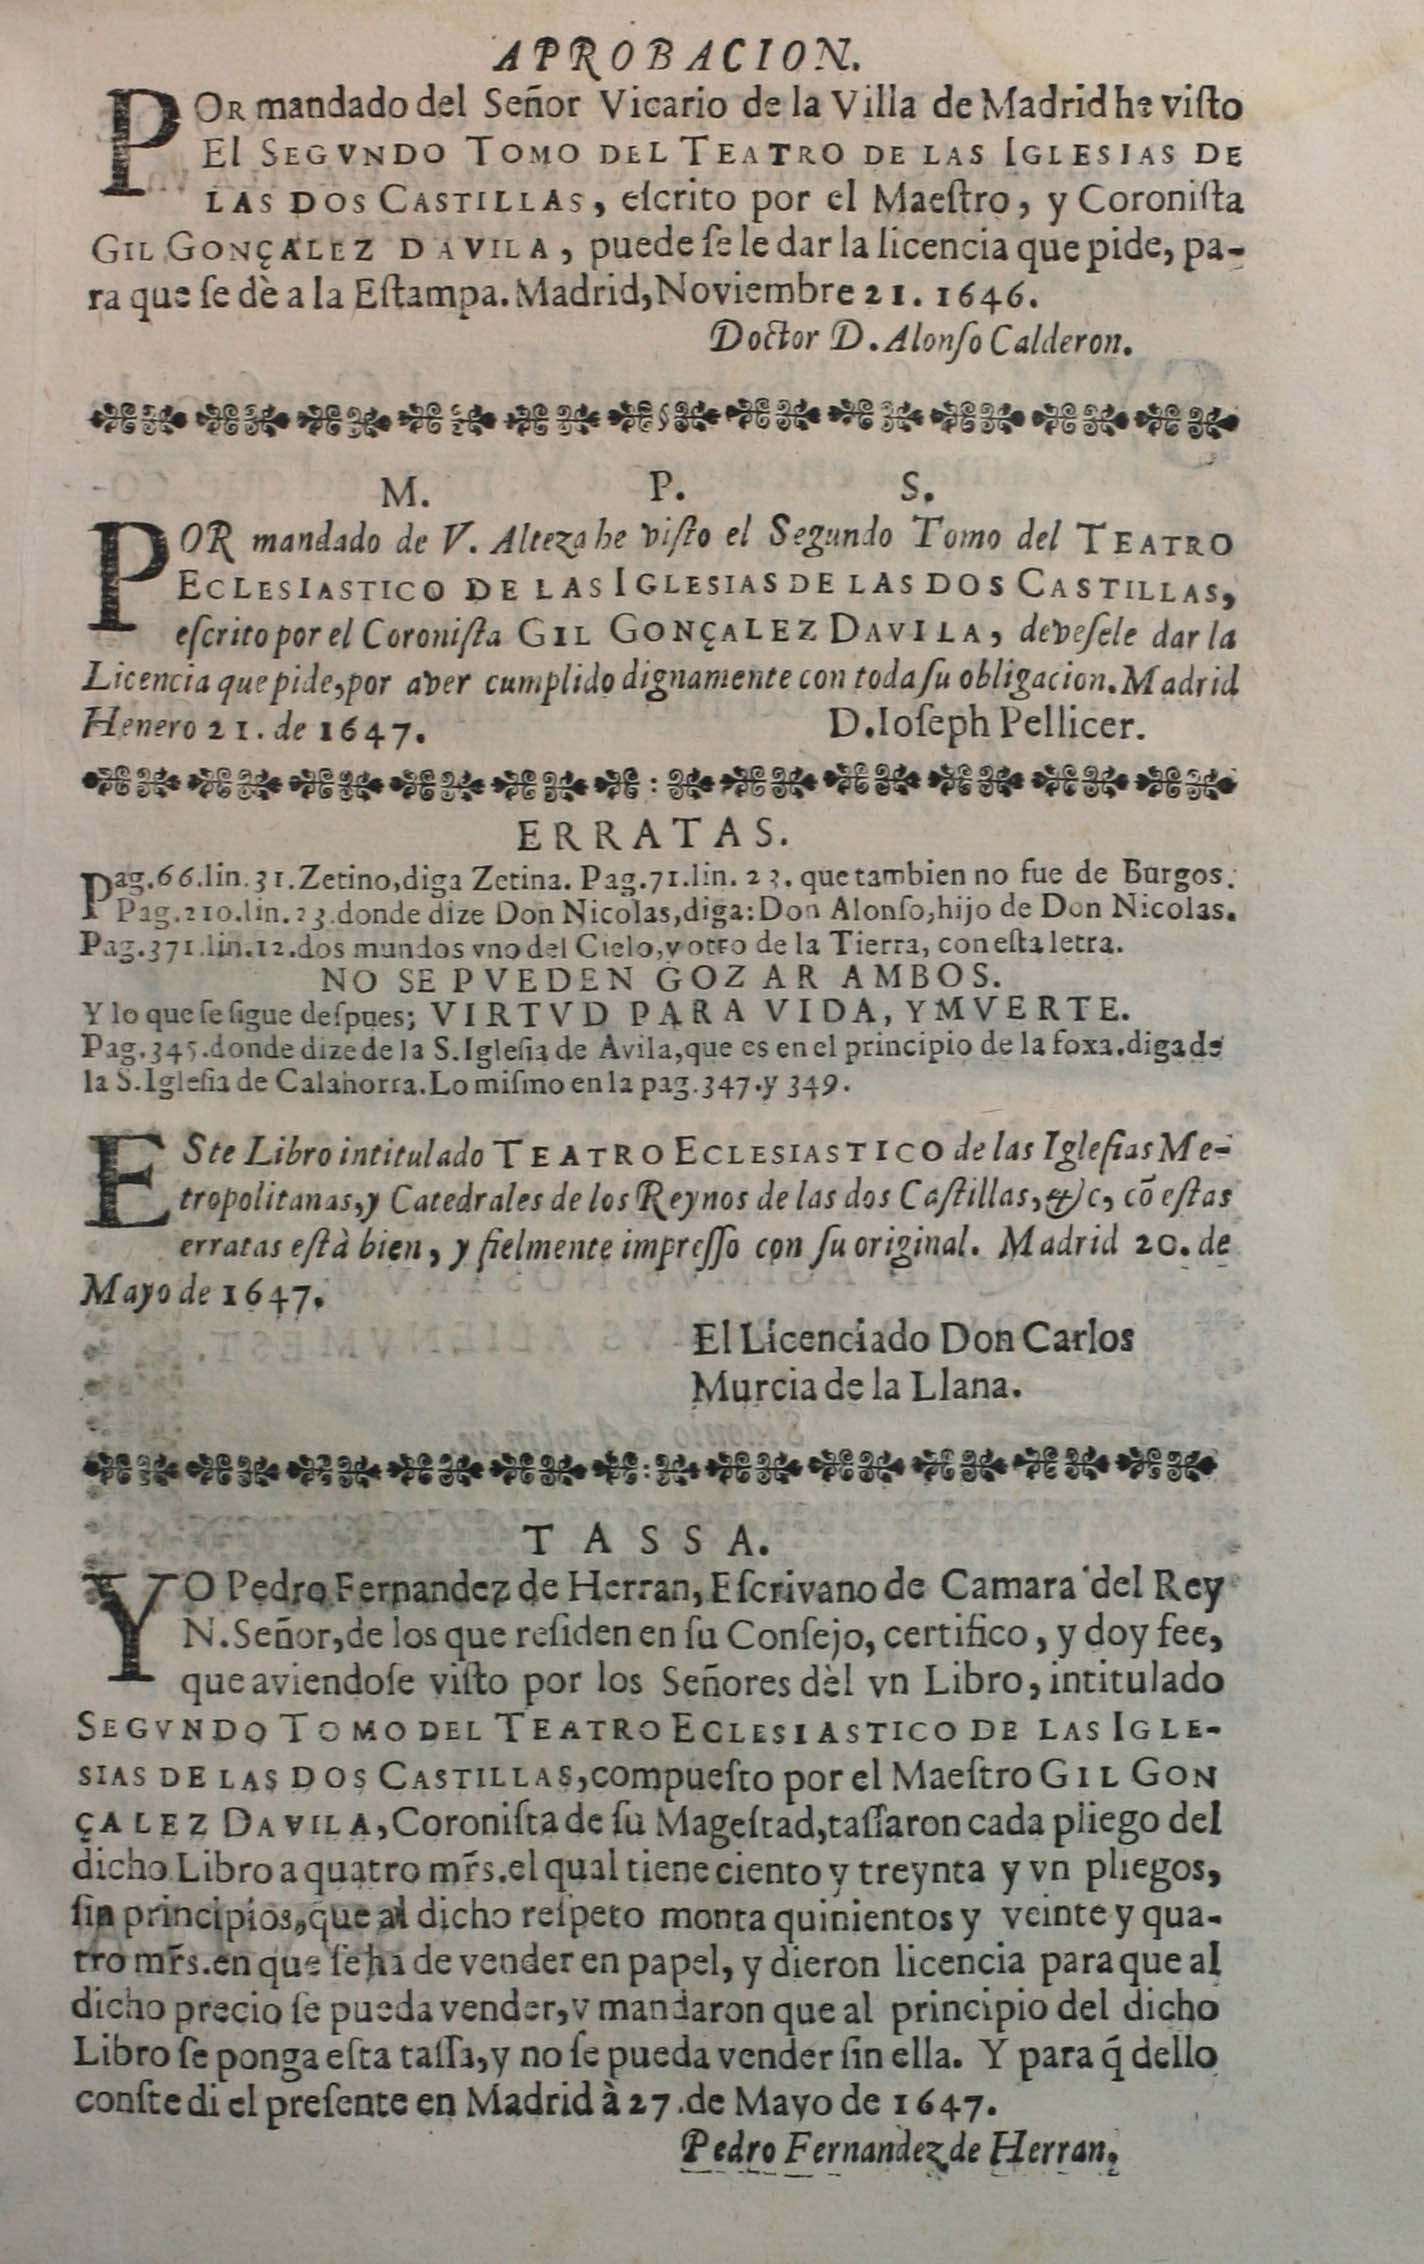 APROBACION.
POR mandado del Señor Vicario de la Villa de Madrid he visto
El SEGVNDO TOMO DEL TEATRO DE LAS IGLESIAS DE
LAS DOS CASTILLAS, escrito por el Maestro, y Coronista
GIL GONÇALEZ DAVILA, puede se le dar la licencia que pide, pa-
ra que se dè a la Estampa. Madrid, Noviembre 21. 1646.
Doctor D. Alonso Calderon.
M. P. S.
POR mandado de V. Alteza he visto el Segundo Tomo del TEATRO
ECLESIASTICO DE LAS IGLESIAS DE LAS DOS CASTILLAS,
escrito por el Coronista GIL GONÇALEZ DAVILA, devesele dar la
Licencia que pide, por aver cumplido dignamente con toda su obligacion. Madrid
Henero 21. de 1647. D. Ioseph Pellicer.
ERRATAS.
Pag. 66. lin. 31. Zetino, diga Zetina. Pag. 71. lin. 23. que tambien no fue de Burgos.
Pag. 210. lin. 23. donde dize Don Nicolas, diga: Don Alonso, hijo de Don Nicolas.
Pag. 371. lin. 12. dos mundos vno del Cielo, y otro de la Tierra, con esta letra.
NO SE PVEDEN GOZAR AMBOS.
Y lo que se sigue despues; VIRTVD PARA VIDA, Y MVERTE.
Pag. 345. donde dize de la S. Iglesia de Avila, que es en el principio de la foxa. diga de
la S. Iglesia de Calahorra. Lo mismo en la pag. 347. y 349.
ESte Libro intitulado TEATRO ECLESIASTICO de las Iglesias Me-
tropolitanas, y Catedrales de los Reynos de las dos Castillas, &c, cõ estas
erratas està bien, y fielmente impresso con su original. Madrid 20. de
Mayo de 1647.
El Licenciado Don Carlos
Murcia de la Llana.
TASSA.
YO Pedro Fernandez de Herran, Escrivano de Camara del Rey
N. Señor, de los que residen en su Consejo, certifico, y doy fee,
que aviendose visto por los Señores dèl vn Libro, intitulado
SEGVNDO TOMO DEL TEATRO ECLESIASTICO DE LAS IGLE-
SIAS DE LAS DOS CASTILLAS, compuesto por el Maestro GIL GON
ÇALEZ DAVILA, Coronista de su Magestad, tassaron cada pliego del
dicho Libro a quatro mr̃s. el qual tiene ciento y treynta y vn pliegos,
sin principios, que al dicho respeto monta quinientos y veinte y qua-
tro mr̃s. en que se ha de vender en papel, y dieron licencia para que al
dicho precio se pueda vender, y mandaron que al principio del dicho
Libro se ponga esta tassa, y no se pueda vender sin ella. Y para q̃ dello
conste di el presente en Madrid à 27. de Mayo de 1647.
Pedro Fernandez de Herran.